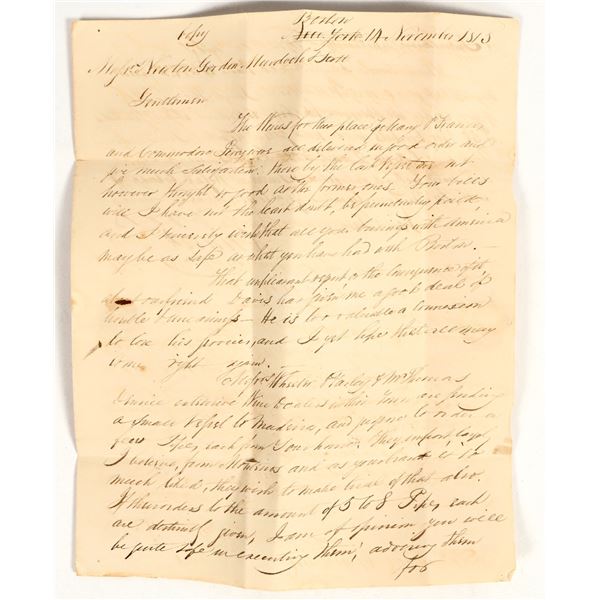 Boston
Copy New York 14 November 1813
Messrs Newton Gordon Murdoch & Scott
Gentlemen
The Wines for this place p Mary & Frances
and Commodore Perry were all delivered in good order and
give much Satisfaction; those by the last Vessel are not
however thought so good as the former ones. Your bills
will I have not the least doubt, be punctually paid,
and I sincerely wish that all your business with America
may be as safe as what you have had with Boston. —
That unpleasant report & the consequences of it,
about our friend Davis has given me a good deal of
trouble & uneasiness. He is too valuable a connexion
to lose his and I yet hope that all may
come right again. —
Messrs Wheeler & Mr Thomas
Dennie extensive Wine Dealers in this Town are sending
a small Vessel to Madeira, and propose to order a
few Pipes each from Your house. They import largely
I believe, from and as your brand is so
much liked, they wish to make trial of that also.
If their orders to the amount of 5 to 8 Pipes each
are distinctly given, I am of opinion you will
be quite safe in executing them, advising them
for